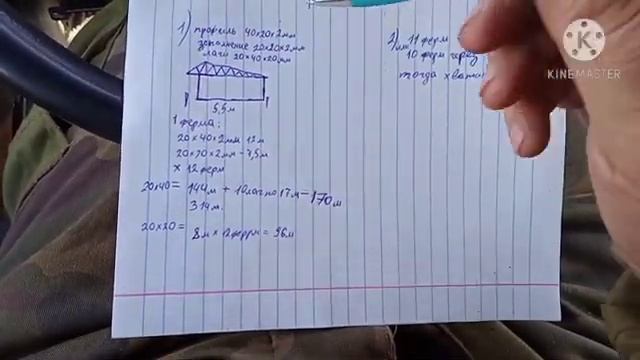 1) профиль 40x20x2мм
заполнение 20x20x2мм
лаги 20x40x20мм
5,5м
1 ферма:
20x40x2мм 12м
20x20x2мм - 7,5м
x 12 ферм
20x40 = 144м + 10лаг по 17м = 170м
314м.
20x20 = 8м x 12ферм = 96м
2) или 11 ферм
10 ферм через
тогда
KINEMASTER